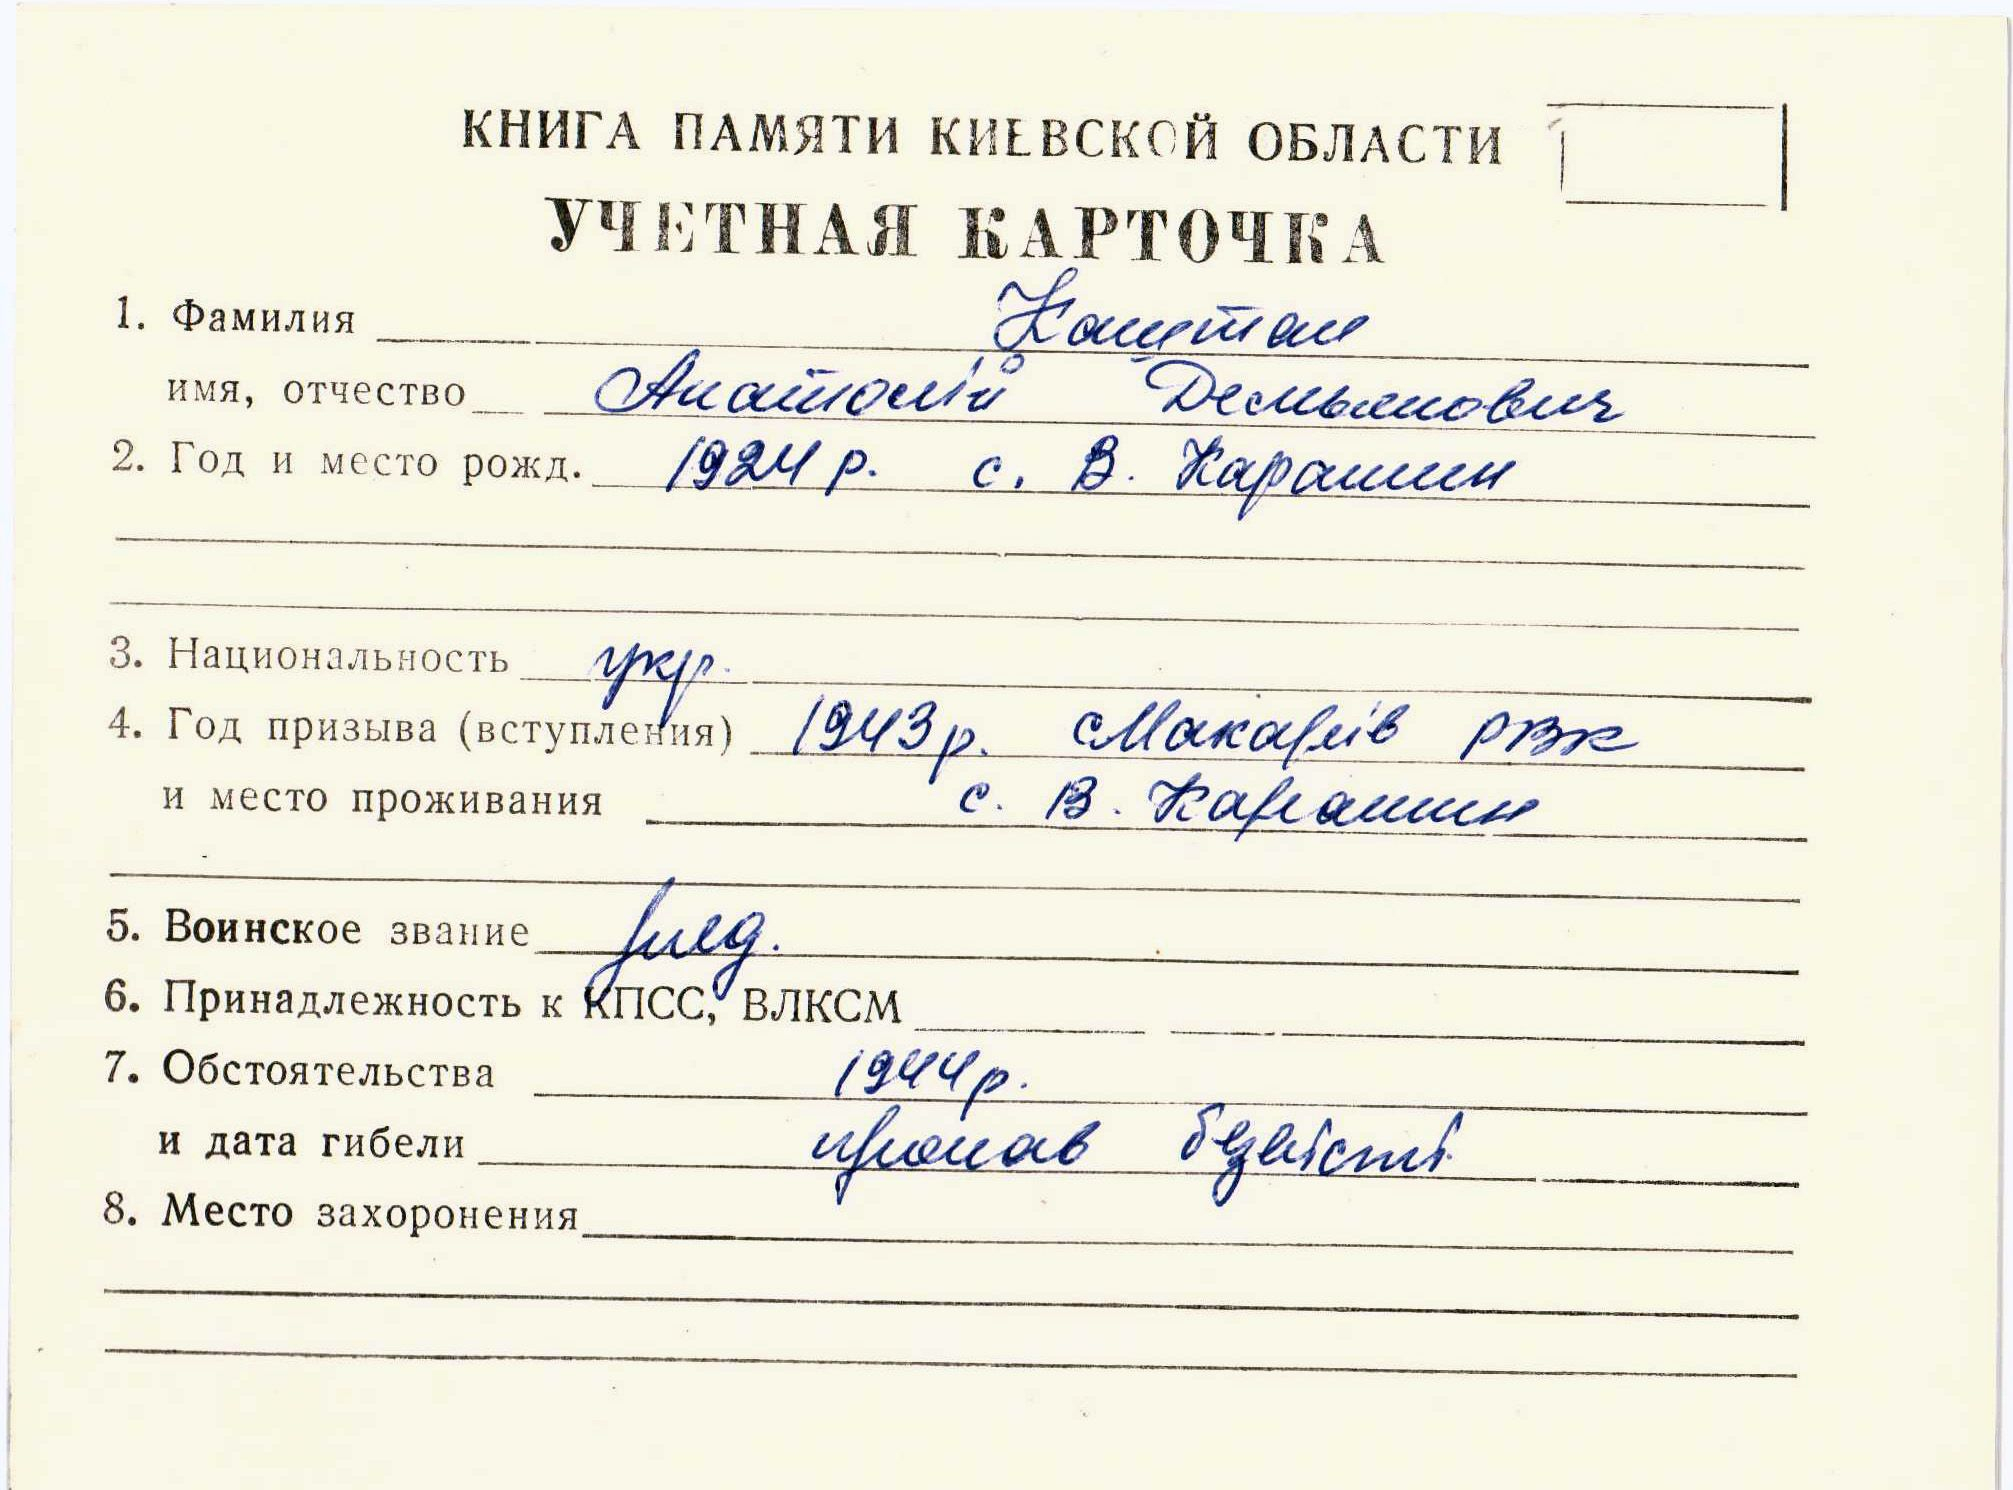 КНИГА ПАМЯТИ КИЕВСКОЙ ОБЛАСТИ
УЧЕТНАЯ КАРТОЧКА
1. Фамилия Каштан
имя, отчество Анатолій Демьянович
2. Год и место рожд. 1924 р. с. В. Карашин
3. Национальность укр.
4. Год призыва (вступления) 1943 р. Макарів РВК
и место проживания с. В. Карашин
5. Воинское звание ряд.
6. Принадлежность к КПСС, ВЛКСМ
7. Обстоятельства 1944 р.
и дата гибели пропав безвісті
8. Место захоронения